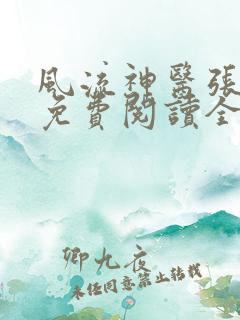 風流神醫張
免費閱讀全
卿九夜
未經同意禁止轉載